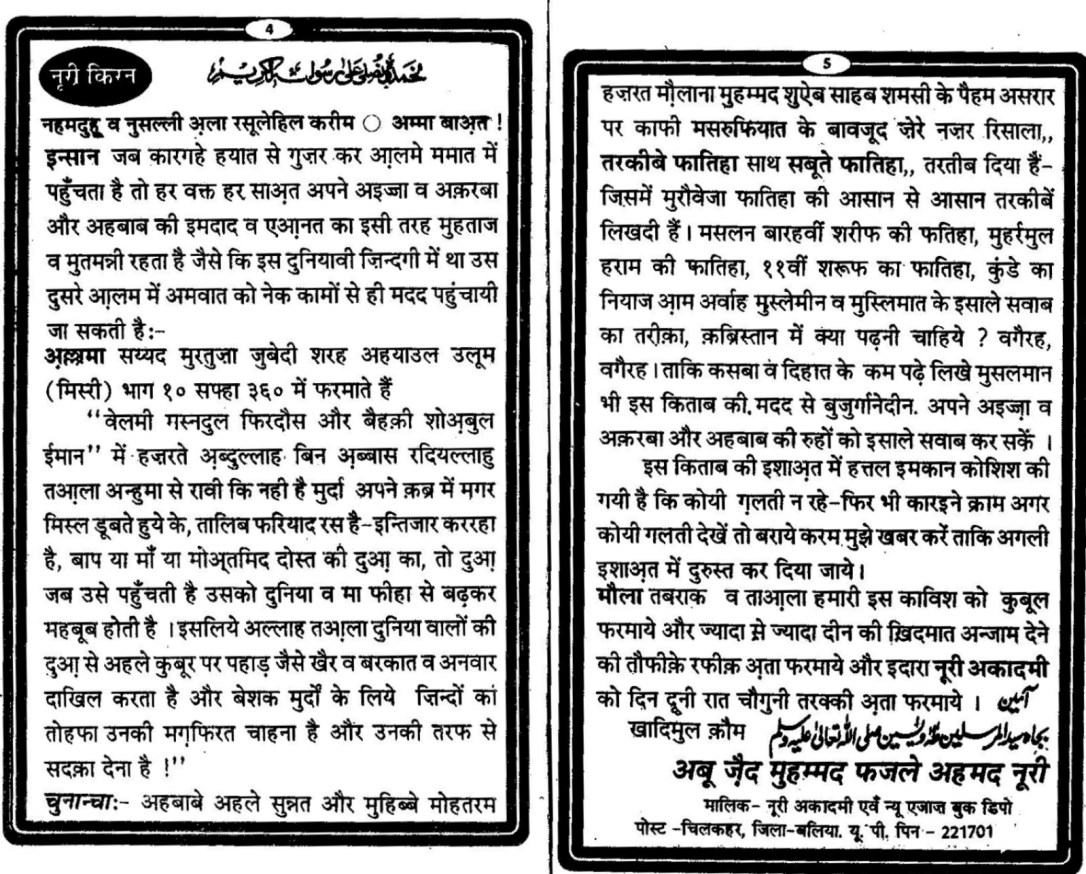 4
नूरी किरन
नहमदुहू व नुसल्ली अ़ला रसूलेहिल करीम ○ अम्मा बाअ़त !
इन्सान जब क़ारगहे हयात से गुज़र कर आ़लमे ममात में
पहुँचता है तो हर वक्त हर साअ़त अपने अइज्जा व अक़रबा
और अहबाब की इमदाद व एआ़नत का इसी तरह मुहताज
व मुतमन्नी रहता है जैसे कि इस दुनियावी ज़िन्दगी में था उस
दुसरे आ़लम में अमवात को नेक कामों से ही मदद पहुंचायी
जा सकती है:-
अ़ल्लामा सय्यद मुरतुज़ा जुबेदी शरह अहयाउल उलूम
(मिस्री) भाग १० सफ्हा ३६० में फरमाते हैं
‘‘वेलमी मस्नदुल फिरदौस और बैहक़ी शोअ़बुल
ईमान’’ में हज़रते अ़ब्दुल्लाह बिन अ़ब्बास रदियल्लाहु
तआ़ला अन्हुमा से रावी कि नही है मुर्दा अपने क़ब्र में मगर
मिस्ल डूबते हुये के, तालिब फरियाद रस है-इन्तिजार कररहा
है, बाप या माँ या मोअ़तमिद दोस्त की दुआ़ का, तो दुआ़
जब उसे पहुँचती है उसको दुनिया व मा फीहा से बढ़कर
महबूब होती है । इसलिये अल्लाह तआ़ला दुनिया वालों की
दुआ़ से अहले कुबूर पर पहाड़ जैसे खैर व बरकात व अनवार
दाखिल करता है और बेशक मुर्दों के लिये ज़िन्दों का
तोहफा उनकी मग़फिरत चाहना है और उनकी तरफ से
सदक़ा देना है !’’
चुनान्चा:- अहबाबे अहले सुन्नत और मुहिब्बे मोहतरम
5
हज़रत मौलाना मुहम्मद शुऐब साहब शमसी के पैहम असरार
पर काफी मसरुफियात के बावजूद ज़ेरे नज़र रिसाला,,
तरकीबे फातिहा साथ सबूते फातिहा,, तरतीब दिया हैं-
जिसमें मुरौवेजा फातिहा की आसान से आसान तरकीबें
लिखदी हैं । मसलन बारहवीं शरीफ की फतिहा, मुहर्रमुल
हराम की फातिहा, ११वीं शरूफ का फातिहा, कुंडे का
नियाज आ़म अर्वाह मुस्लेमीन व मुस्लिमात के इसाले सवाब
का तरी़क़ा, क़ब्रिस्तान में क्या पढ़नी चाहिये ? वगैरह,
वगैरह । ताकि कसबा व दिहात के कम पढ़े लिखे मुसलमान
भी इस किताब की मदद से बुजुर्गानेदीन. अपने अइज्जा़ व
अक़रबा और अहबाब की रुहों को इसाले सवाब कर सकें ।
इस किताब की इशाअ़त में हत्तल इमकान कोशिश की
गयी है कि कोयी ग़लती न रहे-फिर भी कारइने क्राम अगर
कोयी गलती देखें तो बराये करम मुझे खबर करें ताकि अगली
इशाअ़त में दुरुस्त कर दिया जाये ।
मौला तबराक व ताआ़ला हमारी इस काविश को कुबूल
फरमाये और ज्यादा से ज्यादा दीन की ख़िदमात अन्जाम देने
की तौफीक़े रफीक़ अ़ता फरमाये और इदारा नूरी अकादमी
को दिन दूनी रात चौगुनी तरक्की अ़ता फरमाये । آمین
खादिमुल क़ौम
अबू ज़ैद मुहम्मद फजले अहमद नूरी
मालिक- नूरी अकादमी एवँ न्यू एजाज बुक डिपो
पोस्ट -चिलकहर, जिला-बलिया. यू. पी. पिन - 221701